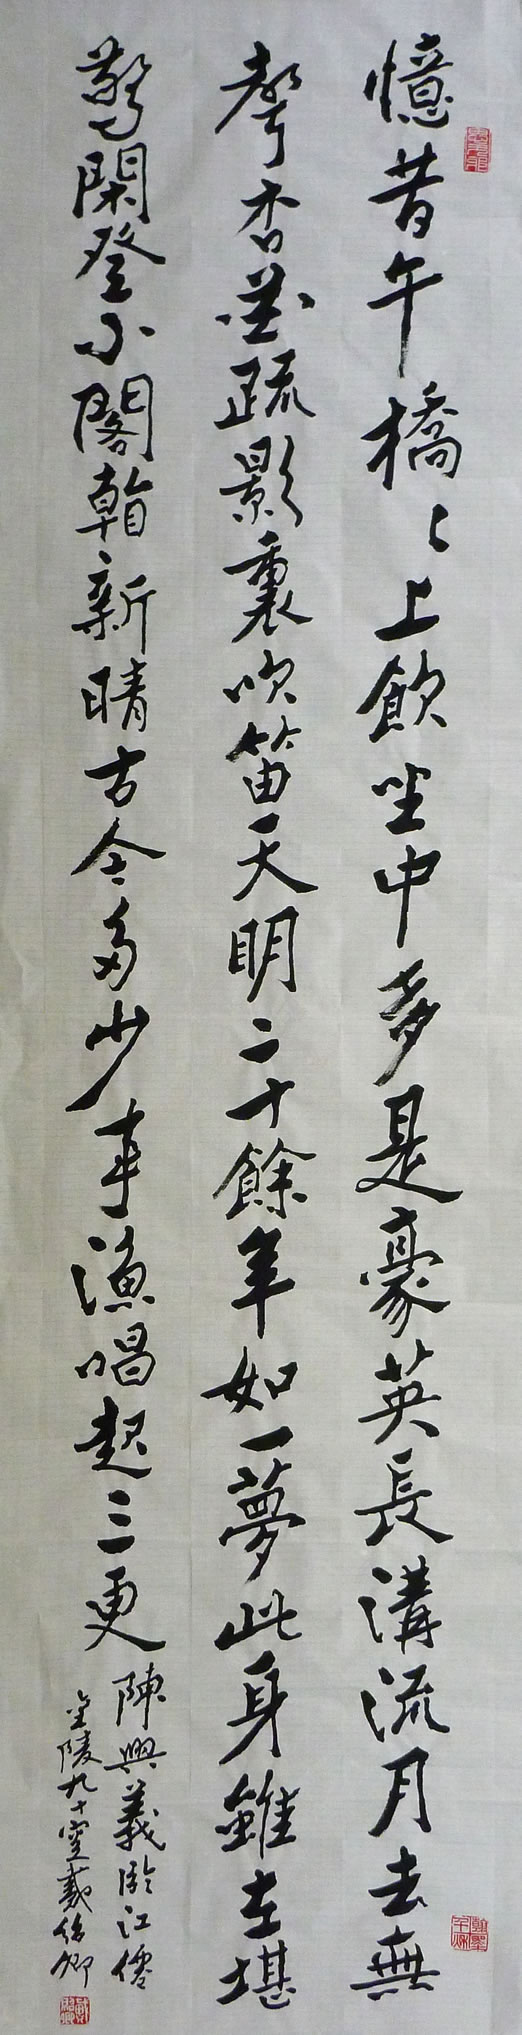 憶昔午橋〻上飲坐中多是豪英長溝流月去無
聲杏花疏影裏吹笛天明二十餘年如一夢此身雖在堪
驚閑登小閣看新晴古今多少事漁唱起三更
陳與義臨江僊
金陵九十叟戴卿